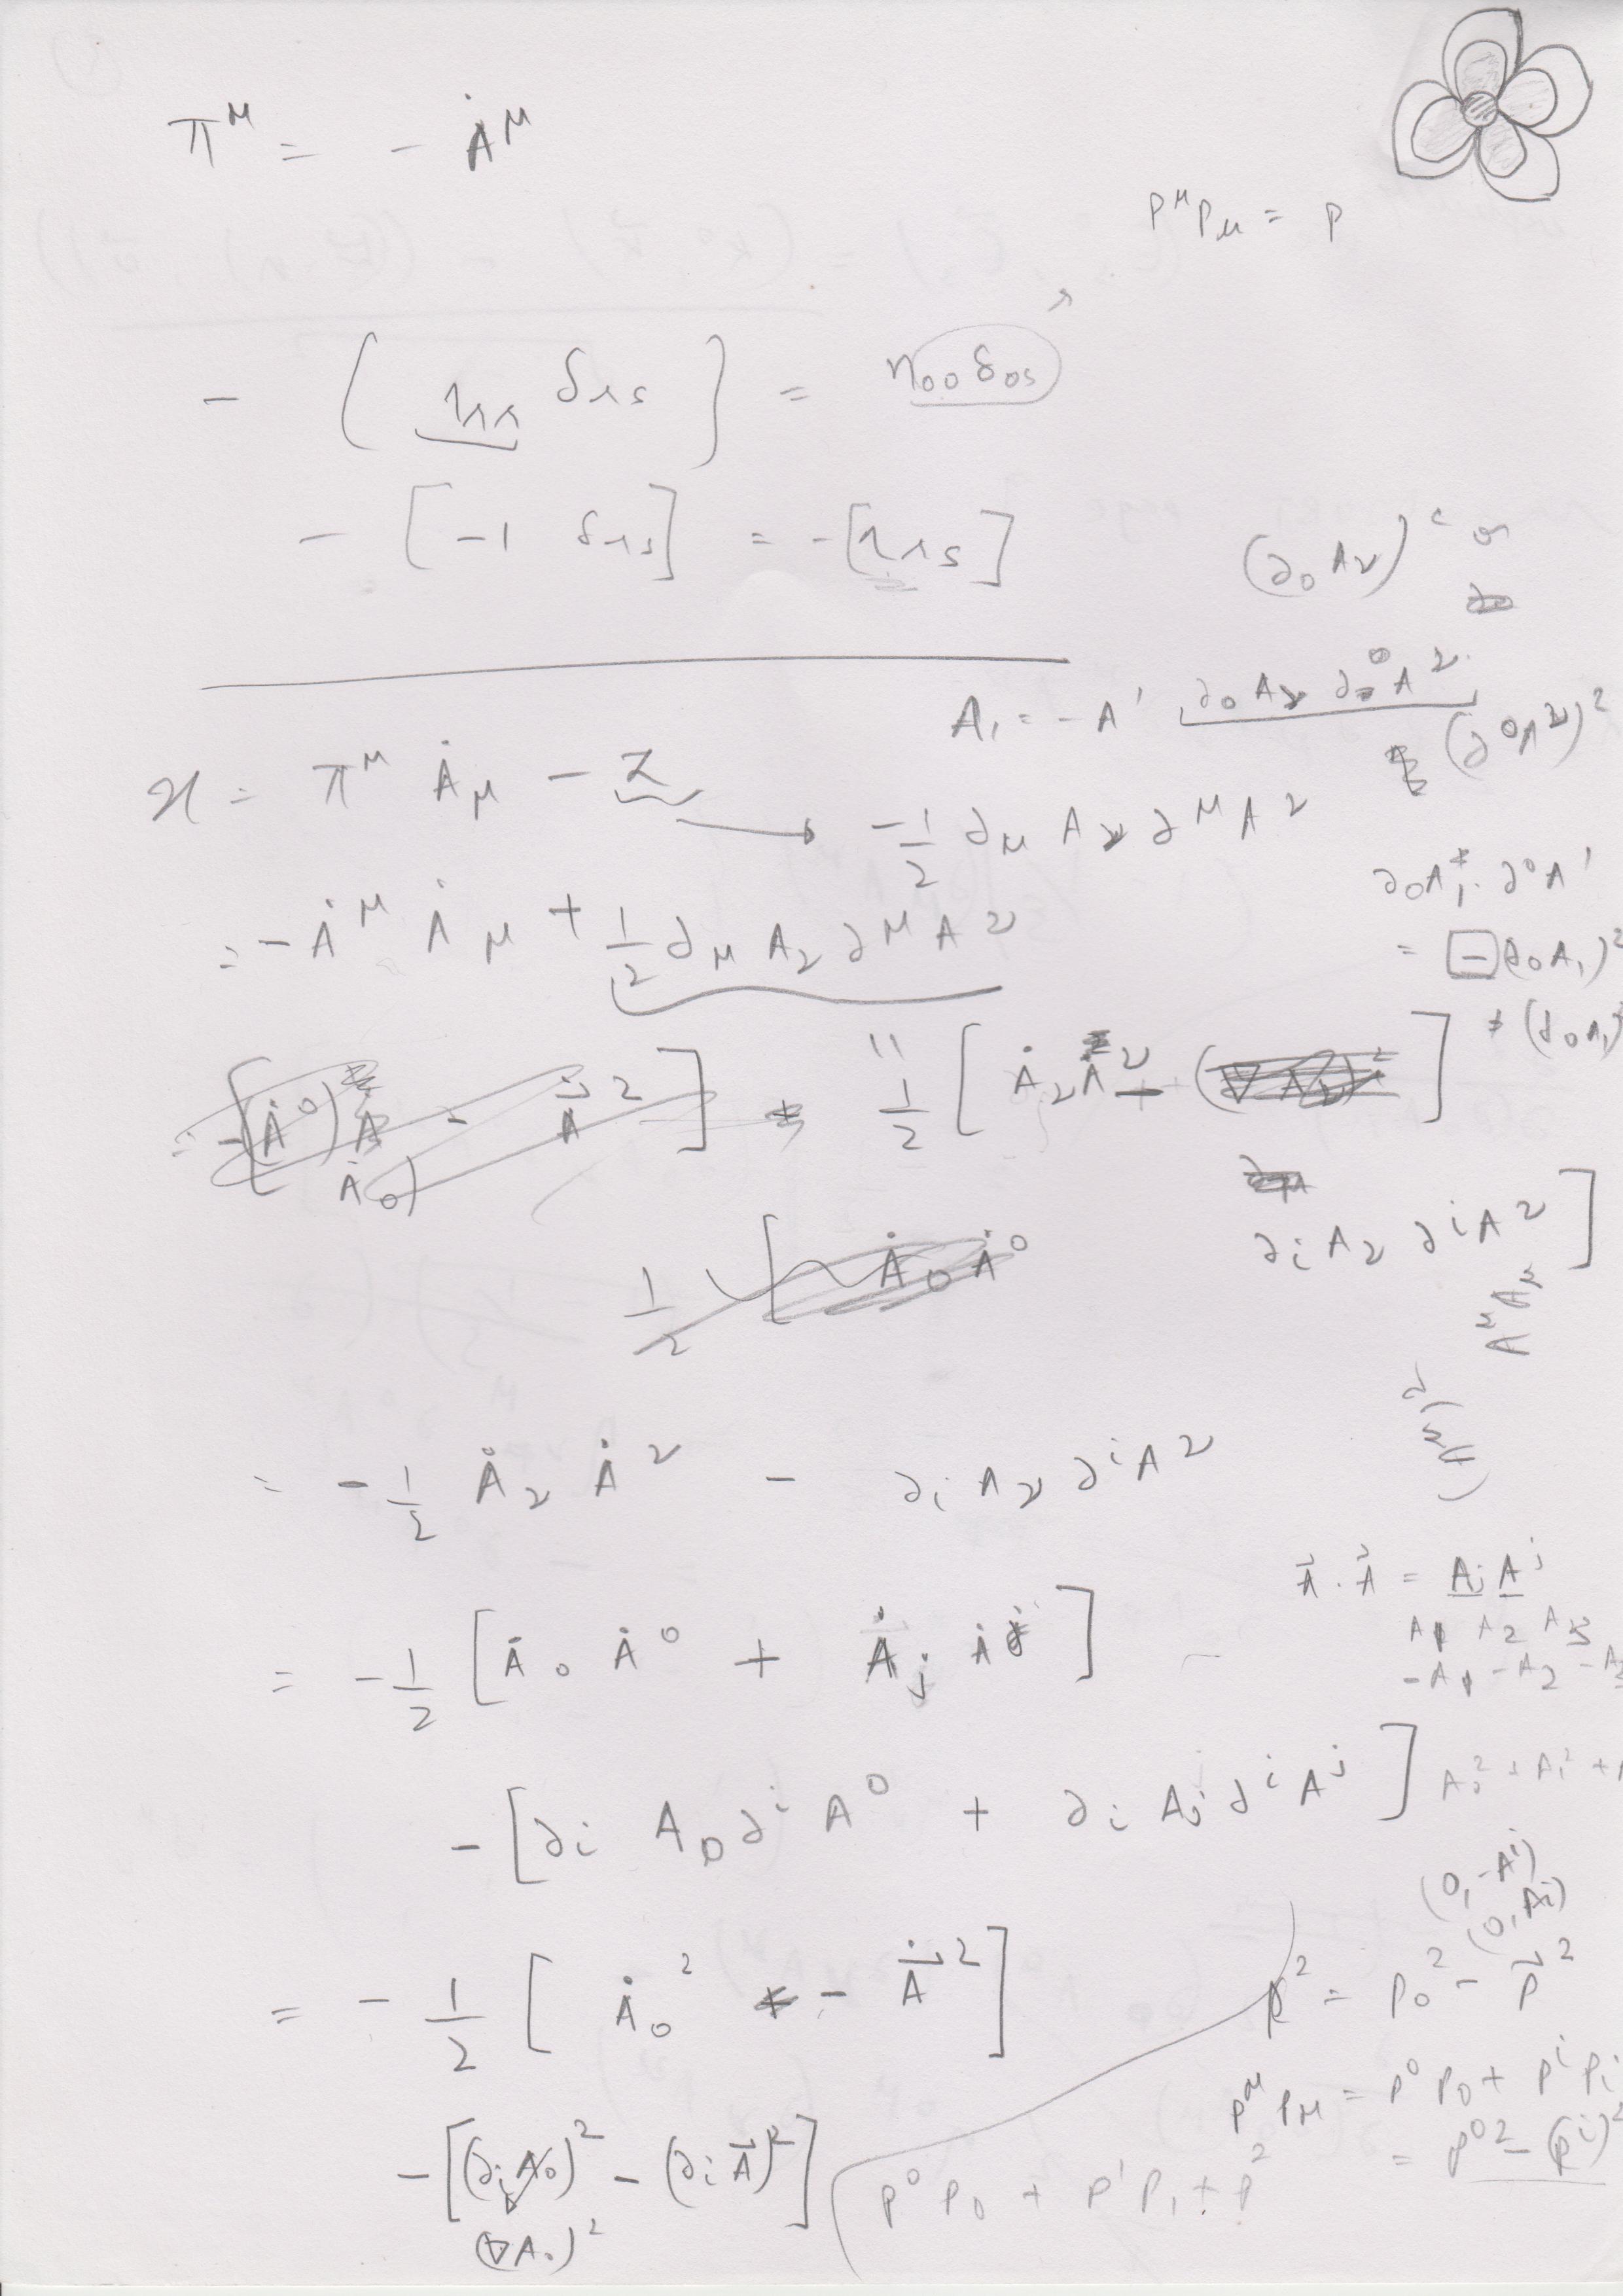 π^μ = - Ȧ^μ
p^μ p_μ = p
- ( η_rr δ_rs ) = η_00 δ_0s
- [ -1 δ_rs ] = - [ η_rs ]
(∂_0 A_ν)^2 or
A_1 = - A^1 ∂_0 A_ν ∂^0 A^ν
(∂^0 A^ν)^2
ℋ = π^μ Ȧ_μ - ℒ → -1/2 ∂_μ A_ν ∂^μ A^ν
= - Ȧ^μ Ȧ_μ + 1/2 ∂_μ A_ν ∂^μ A^ν
∂_0 A_1 . ∂^0 A^1
= - (∂_0 A_1)^2
≠ (∂_0 A_1)
" 1/2 [ Ȧ_ν Ȧ^ν + ]
∂_i A_ν ∂^i A^ν ]
1/2 [ Ȧ_0 Ȧ^0
A^μ A_μ
= -1/2 Ȧ_ν Ȧ^ν - ∂_i A_ν ∂^i A^ν
A⃗ . A⃗ = A_j A^j
A_1 A_2 A_3
-A_1 -A_2 -A_3
= -1/2 [ Ȧ_0 Ȧ^0 + Ȧ_j Ȧ^j ] -
- [ ∂_i A_0 ∂^i A^0 + ∂_i A_j ∂^i A^j ]
A_0^2 + A_1^2 +
(0, -A^i)
(0, A_i)
= -1/2 [ Ȧ_0^2 - \dot{A⃗}^2 ]
p^2 = p_0^2 - p⃗^2
p^μ p_μ = p^0 p_0 + p^i p_i
= p^0^2 - (p^i)^2
- [ (∂_i A_0)^2 - (∂_i A⃗)^2 ]
p^0 p_0 + p^1 p_1 + p^2
(∇A_0)^2